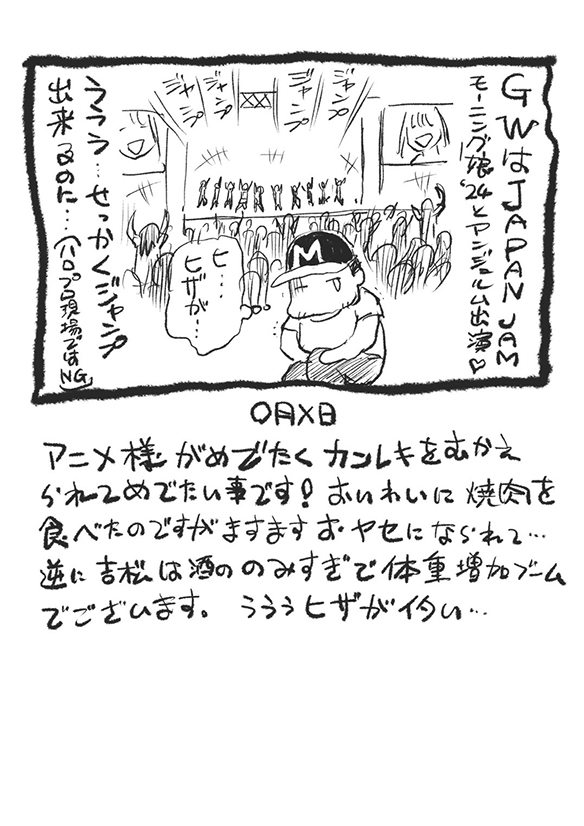 GWはJAPAN JAM
モーニング娘'24とアンジュルム出演♡
ジャンプ
ジャンプ
ジャンプ
ジャンプ
M
ヒ…
ヒザが…
うううう…せっかくジャンプ
出来るのに…(ハロプロ現場ではNG)
○月×日
アニメ様がめでたくカンレキをむかえ
られてめでたい事です!おいわいに焼肉を
食べたのですがますますおヤセになられて…
逆に吉松は酒ののみすぎで体重増加ブーム
でございます。うううヒザがイタい…